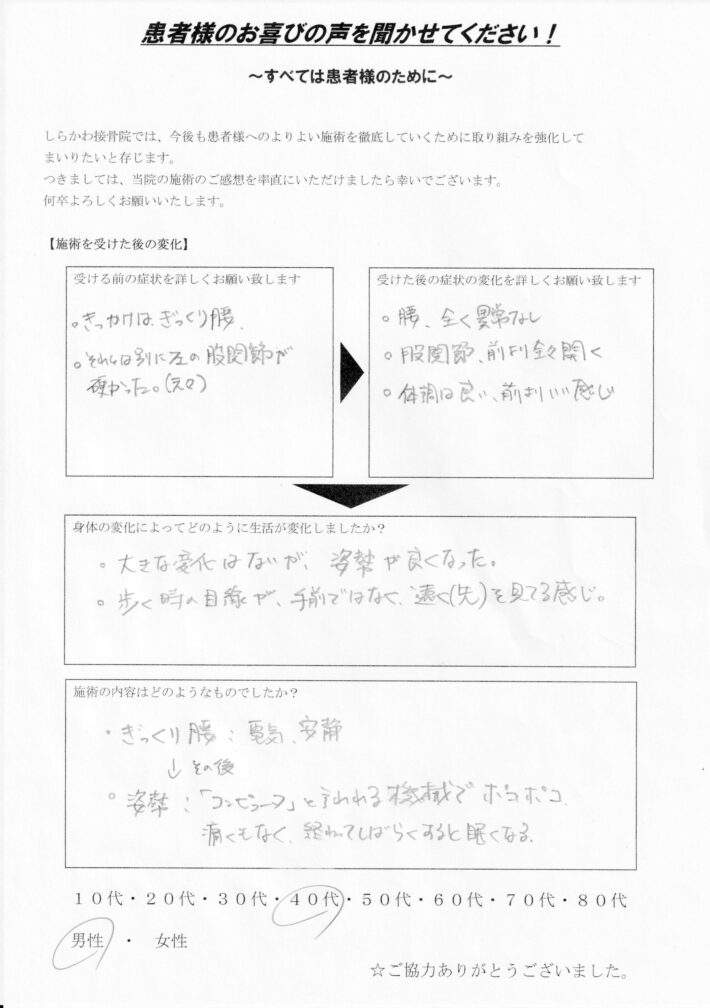 患者様のお喜びの声を聞かせてください！
～すべては患者様のために～
しらかわ接骨院では、今後も患者様へのよりよい施術を徹底していくために取り組みを強化して
まいりたいと存じます。
つきましては、当院の施術のご感想を率直にいただけましたら幸いでございます。
何卒よろしくお願いいたします。
【施術を受けた後の変化】
受ける前の症状を詳しくお願い致します
。きっかけは、ぎっくり腰、
。それとは別に左の股関節が
硬かった。(元々)
受けた後の症状の変化を詳しくお願い致します
。腰、全く異常なし
。股関節、前より全々開く
。体調は良い、前よりいい感じ
身体の変化によってどのように生活が変化しましたか？
。大きな変化はないが、姿勢が良くなった。
。歩く時の目線が、手前ではなく、遠く(先)を見てる感じ。
施術の内容はどのようなものでしたか？
・ぎっくり腰：電気、安静
↓その後
。姿勢：「コンピューフ」と言われる機械でポコポコ
痛くもなく、終わってしばらくすると眠くなる。
１０代・２０代・３０代・４０代・５０代・６０代・７０代・８０代
男性 ・ 女性
☆ご協力ありがとうございました。